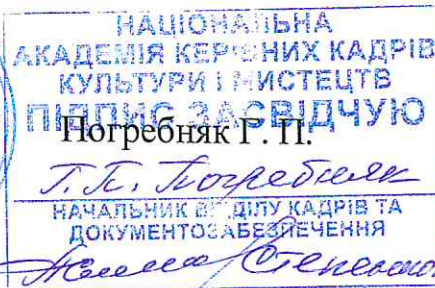 НАЦІОНАЛЬНА
АКАДЕМІЯ КЕРІВНИХ КАДРІВ
КУЛЬТУРИ І МИСТЕЦТВ
ПІДПИС ЗАСВІДЧУЮ
Погребняк Г. П.
Г. П. Погребняк
НАЧАЛЬНИК ВІДДІЛУ КАДРІВ ТА
ДОКУМЕНТОЗАБЕЗПЕЧЕННЯ